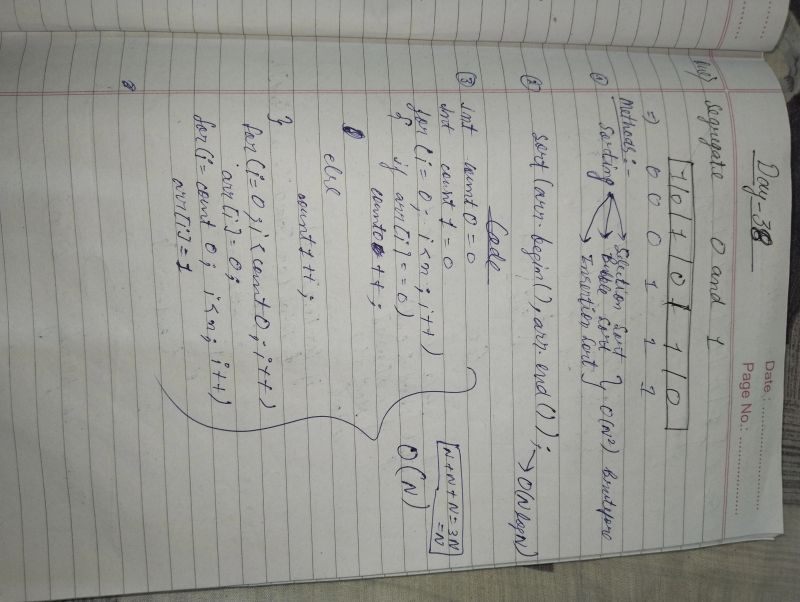 Date : ..............
Page No.: ..............
Day-38
segregate 0 and 1
1 | 0 | 1 | 0 | 1 | 1 | 0
=> 0 0 0 1 1 1
Methods:-
① Sorting → Selection Sort
→ Bubble Sort
→ Insertion Sort } O(N²) bruteforce
② sort(arr.begin(), arr.end()); → O(N log N)
Code
③ Int count 0 = 0
Int count 1 = 0
for(i=0; i<n; i++)
{ if arr[i]==0)
count0++;
else
count1++;
}
for(i=0; i<count0; i++)
arr[i]=0;
for(i=count0; i<n; i++)
arr[i]=1
N+N+N=3N
=N
O(N)